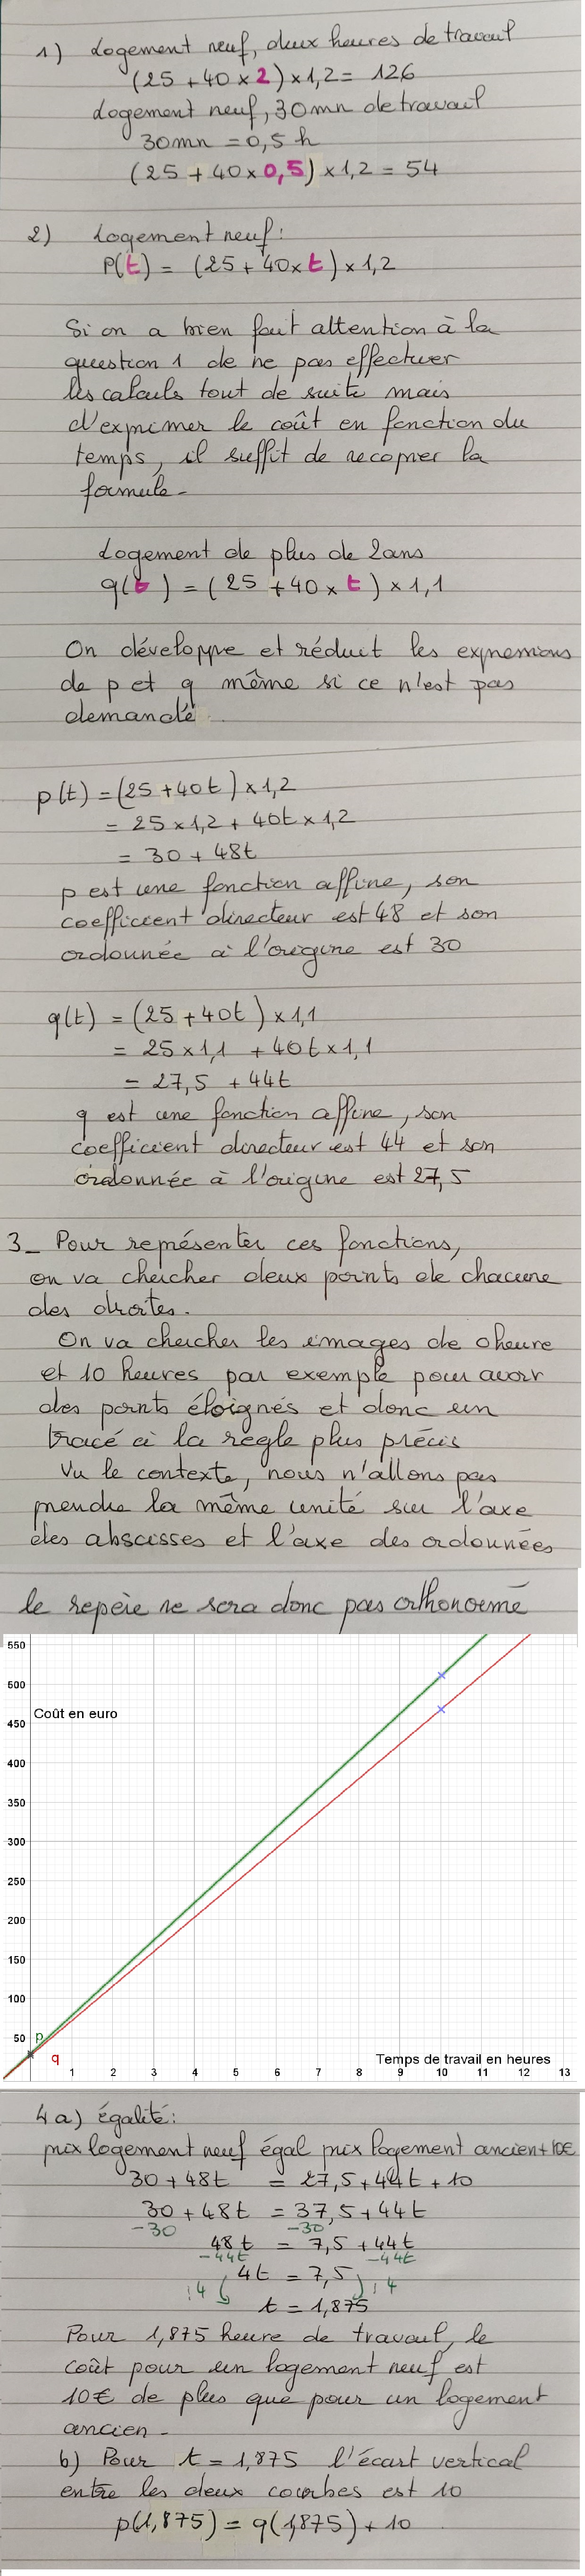 1) Logement neuf, deux heures de travail
(25 + 40 x 2) x 1,2 = 126
Logement neuf, 30mn de travail
30mn = 0,5 h
(25 + 40 x 0,5) x 1,2 = 54
2) Logement neuf:
P(t) = (25 + 40 x t) x 1,2
Si on a bien fait attention à la
question 1 de ne pas effectuer
les calculs tout de suite mais
d'exprimer le coût en fonction du
temps, il suffit de recopier la
formule-
Logement de plus de 2ans
q(t) = (25 + 40 x t) x 1,1
On développe et réduit les expressions
de p et q même si ce n'est pas
demandé.
p(t) = (25 + 40t) x 1,2
= 25 x 1,2 + 40t x 1,2
= 30 + 48t
p est une fonction affine, son
coefficient directeur est 48 et son
ordonnée à l'origine est 30
q(t) = (25 + 40t) x 1,1
= 25 x 1,1 + 40t x 1,1
= 27,5 + 44t
q est une fonction affine, son
coefficient directeur est 44 et son
ordonnée à l'origine est 27,5
3_ Pour représenter ces fonctions,
on va chercher deux points de chacune
des droites.
On va chercher les images de 0heure
et 10 heures par exemple pour avoir
des points éloignés et donc un
tracé à la règle plus précis
Vu le contexte, nous n'allons pas
prendre la même unité sur l'axe
des abscisses et l'axe des ordonnées
le repère ne sera donc pas orthonormé
550
500
Coût en euro
450
400
350
300
250
200
150
100
50
p
q
Temps de travail en heures
1 2 3 4 5 6 7 8 9 10 11 12 13
4a) égalité:
prix logement neuf égal prix logement ancien+10€
30 + 48t = 27,5 + 44t + 10
30 + 48t = 37,5 + 44t
-30 -30
48t = 7,5 + 44t
-44t -44t
:4 4t = 7,5 :4
t = 1,875
Pour 1,875 heure de travail, le
coût pour un logement neuf est
10€ de plus que pour un logement
ancien-
b) Pour t = 1,875 l'écart vertical
entre les deux courbes est 10
p(1,875) = q(1,875) + 10